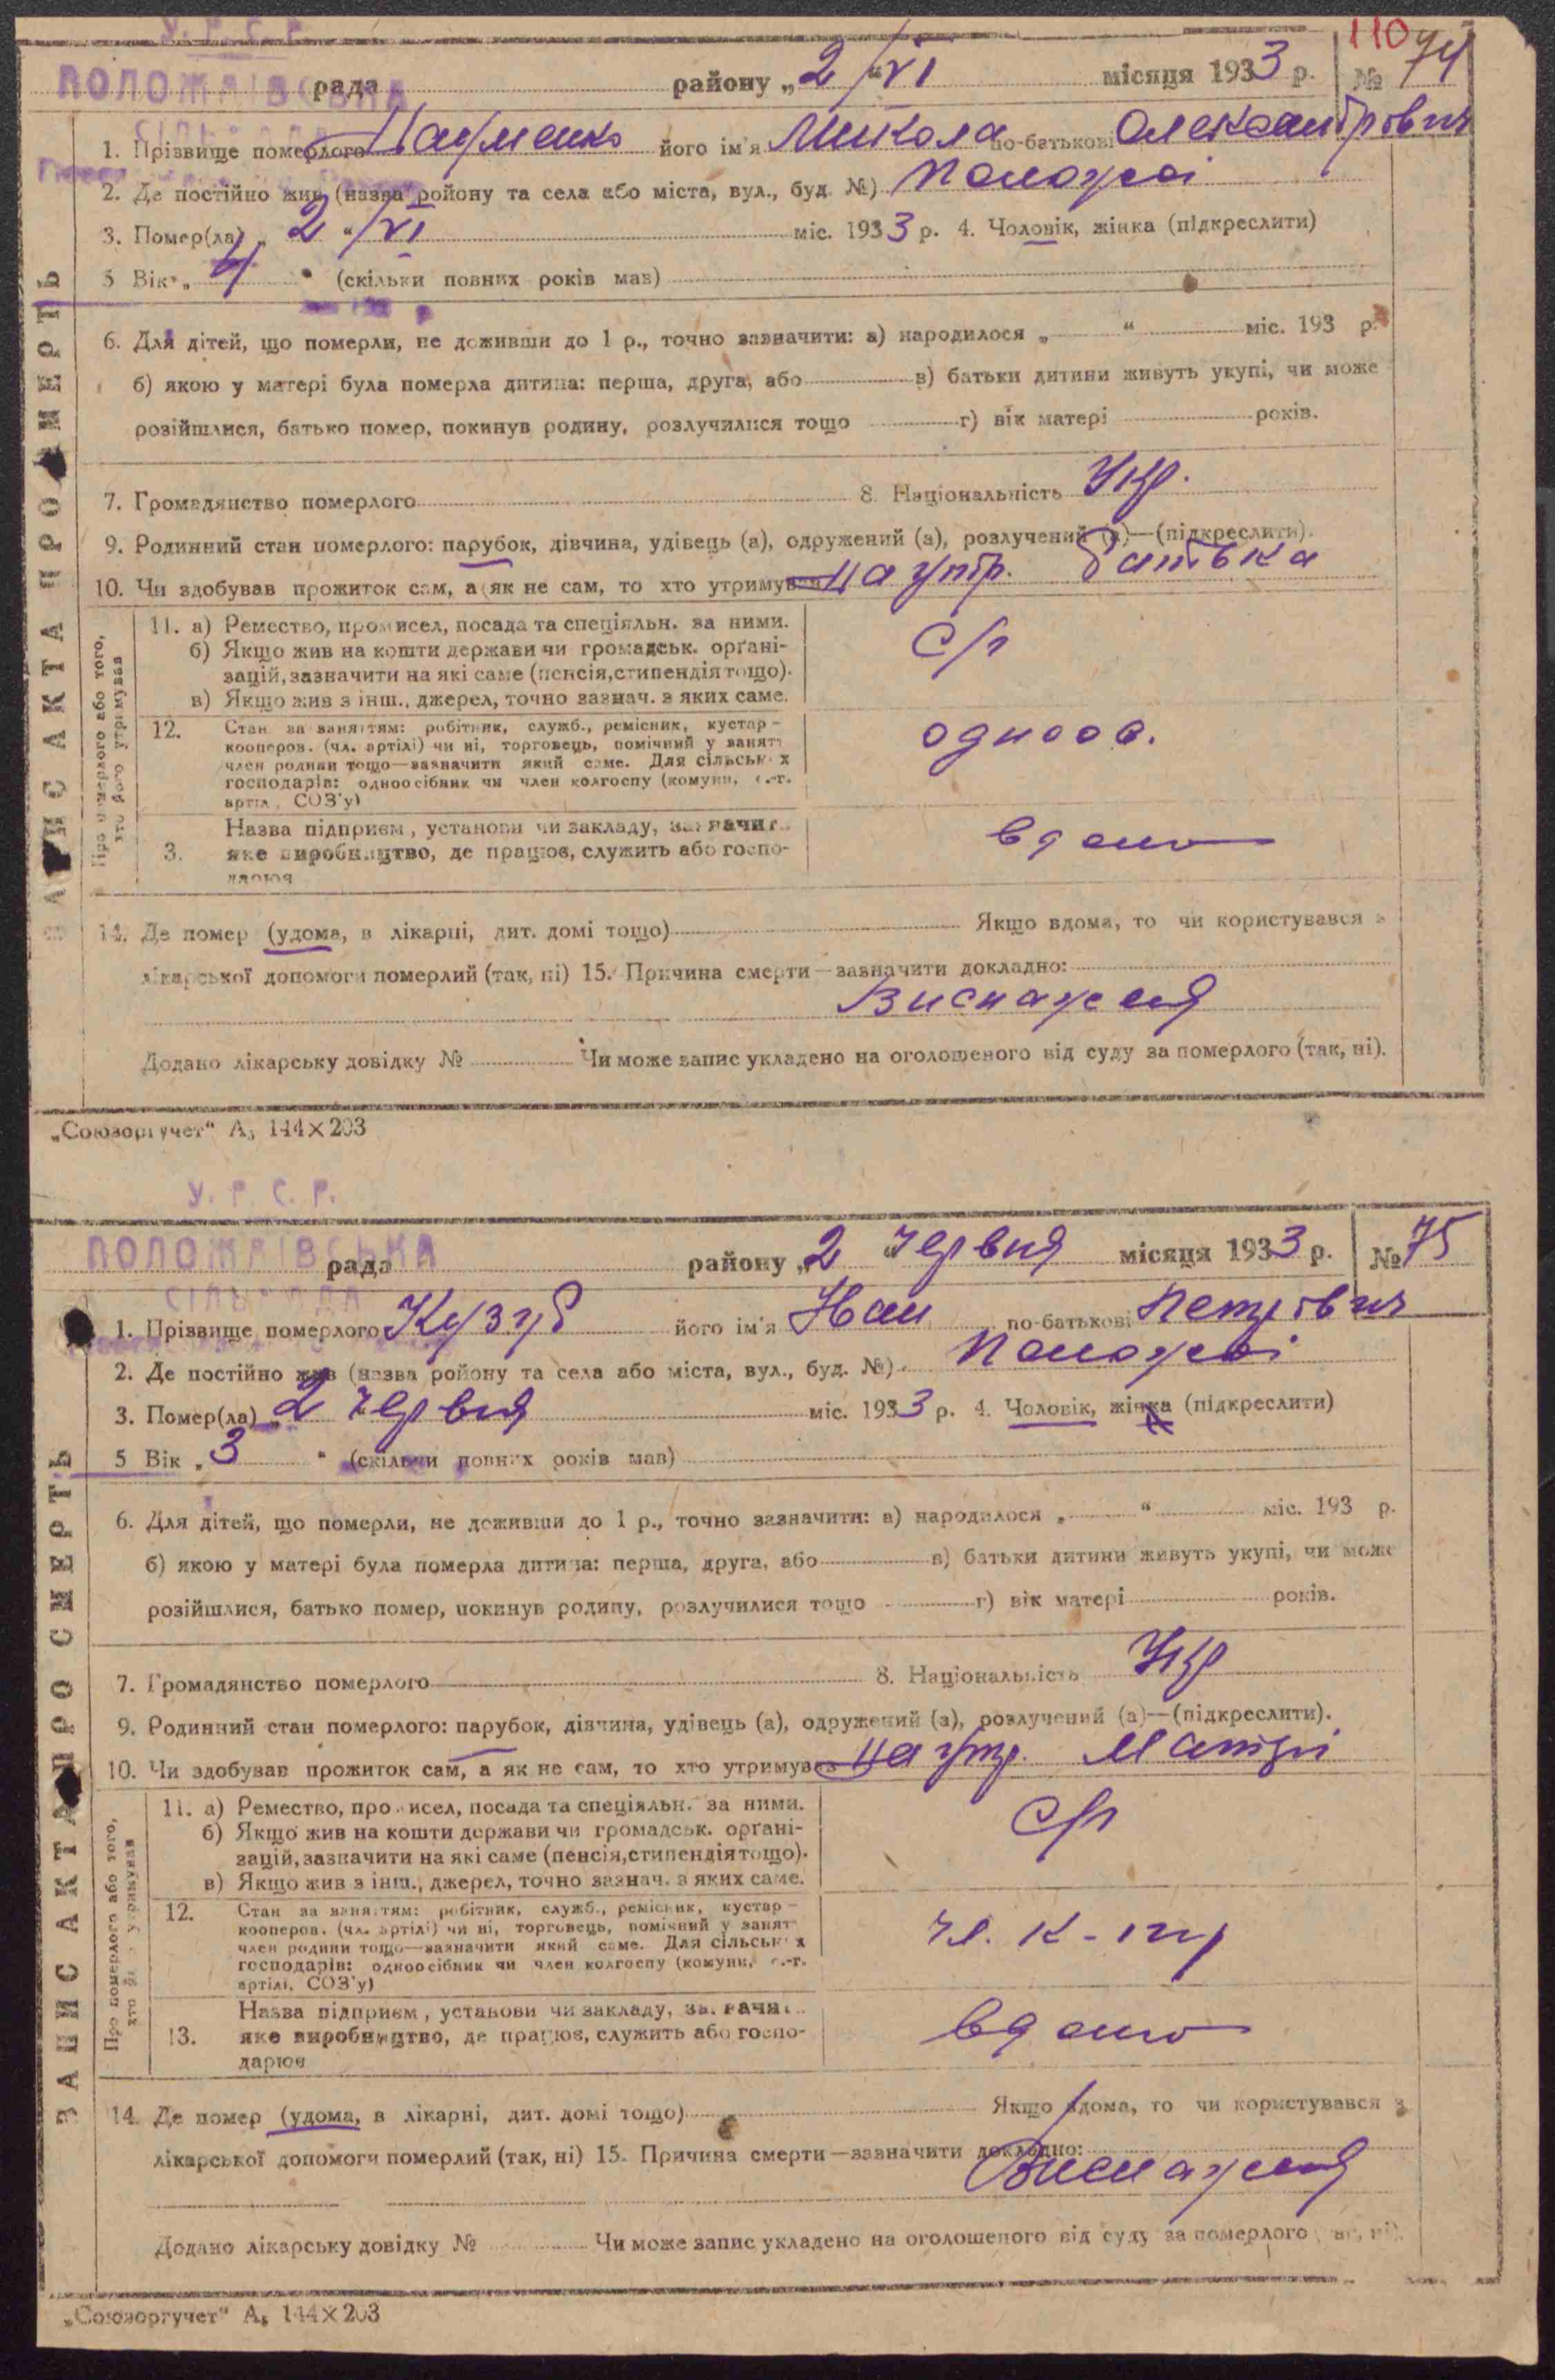 У. Р. С. Р.
110
ПОЛОЖАЇВСЬКА рада району „2“ VI місяця 1933 р. № 74
1. Прізвище померлого Науменко його ім'я Микола по-батькові Олександрович
2. Де постійно жив (назва ройону та села або міста, вул., буд. №) Положаї
3. Помер(ла) „2“ VI міс. 1933 р. 4. Чоловік, жінка (підкреслити)
5 Вік „4“ (скільки повних років мав)
6. Для дітей, що померли, не доживши до 1 р., точно зазначити: а) народилося „ “ міс. 193 р.
б) якою у матері була померла дитина: перша, друга, або в) батьки дитини живуть укупі, чи може
розійшлися, батько помер, покинув родину, розлучилися тощо г) вік матері років.
7. Громадянство померлого 8. Національність Укр.
9. Родинний стан померлого: парубок, дівчина, удівець (а), одружений (а), розлучений (а)—(підкреслити).
10. Чи здобував прожиток сам, а як не сам, то хто утримував на утр. батька
ЗАПИС АКТА ПРО СМЕРТЬ
Про померлого або того,
хто його утримував
11. а) Ремество, промисел, посада та спеціяльн. за ними.
б) Якщо жив на кошти держави чи громадськ. орґані-
зацій, зазначити на які саме (пенсія, стипендія тощо).
в) Якщо жив з інш., джерел, точно зазнач. з яких саме.
с/г
12. Стан за заняттям: робітник, служб., ремісник, кустар-
кооперов. (чл. артілі) чи ні, торговець, помічний у занятт
член родини тощо—зазначити який саме. Для сільських
господарів: одноосібник чи член колгоспу (комуни, с.-г.
артіл, СОЗ'у)
одноос.
3. Назва підприєм, установи чи закладу, зазначит
яке виробництво, де працює, служить або госпо-
дарює
вдома
14. Де помер (удома, в лікарні, дит. домі тощо) Якщо вдома, то чи користувався з
лікарської допомоги померлий (так, ні) 15. Причина смерти—зазначити докладно:
Виснаженя
Додано лікарську довідку № Чи може запис укладено на оголошеного від суду за померлого (так, ні).
„Союзоргучет“ А₅ 144×203
У. Р. С. Р.
ПОЛОЖАЇВСЬКА рада району „2“ червня місяця 1933 р. № 75
СІЛЬРАДА
1. Прізвище померлого Кузуб його ім'я Иван по-батькові Петрович
2. Де постійно жив (назва ройону та села або міста, вул., буд. №) Положаї
3. Помер(ла) „2 червня міс. 1933 р. 4. Чоловік, жінка (підкреслити)
5 Вік „3“ (скільки повних років мав)
6. Для дітей, що померли, не доживши до 1 р., точно зазначити: а) народилося „ “ міс. 193 р.
б) якою у матері була померла дитина: перша, друга, або в) батьки дитини живуть укупі, чи може
розійшлися, батько помер, покинув родину, розлучилися тощо г) вік матері років.
7. Громадянство померлого 8. Національність Укр
9. Родинний стан померлого: парубок, дівчина, удівець (а), одружений (а), розлучений (а)—(підкреслити).
10. Чи здобував прожиток сам, а як не сам, то хто утримував на утр. Матері
ЗАПИС АКТА ПРО СМЕРТЬ
Про померлого або того,
хто його утримував
11. а) Ремество, промисел, посада та спеціяльн. за ними.
б) Якщо жив на кошти держави чи громадськ. орґані-
зацій, зазначити на які саме (пенсія, стипендія тощо).
в) Якщо жив з інш., джерел, точно зазнач. з яких саме.
с/г
12. Стан за заняттям: робітник, служб., ремісник, кустар-
кооперов. (чл. артілі) чи ні, торговець, помічний у занят
член родини тощо—зазначити який саме. Для сільських
господарів: одноосібник чи член колгоспу (комуни, с.-г.
артілі, СОЗ'у)
чл. к-гпу
13. Назва підприєм, установи чи закладу, зазначи
яке виробництво, де працює, служить або госпо-
дарює
вдома
14. Де помер (удома, в лікарні, дит. домі тощо) Якщо вдома, то чи користувався з
лікарської допомоги померлий (так, ні) 15. Причина смерти—зазначити докладно:
Виснаженя
Додано лікарську довідку № Чи може запис укладено на оголошеного від суду за померлого (так, ні).
„Союзоргучет“ А₅ 144×203